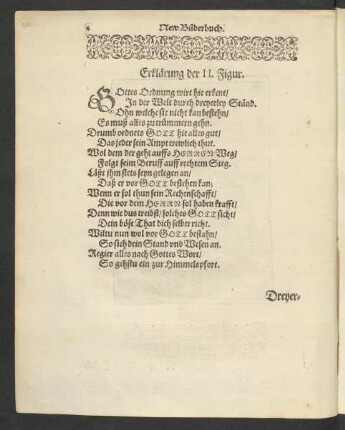 New Bilderbuch.
Erklärung der II. Figur.
GOttes Ordnung wirt hie erkent/
In der Welt durch dreyerley Ständ.
Ohn welche sie nicht kan bestehn/
Es muß alles zu trümmern gehn.
Drumb ordnets GOTT hie alles gut/
Das jeder sein Ampt trewlich thut.
Wol dem der geht auffs HERREN Weg/
Folgt seim Beruff auff rechtem Steg.
Läßt jhm stets seyn gelegen an/
Daß er vor GOTT bestehen kan/
Wenn er sol thun sein Rechenschafft/
Die vor dem HERRN sol haben krafft/
Denn wie dus treibst/ solches GOTT sicht/
Dein böse That dich selber richt.
Wiltu nun wol vor GOTT bestahn/
So sich dein Stand vnd Wesen an.
Regier alles nach Gottes Wort/
So gehstu ein zur Himmelspfort.
Dreyer-